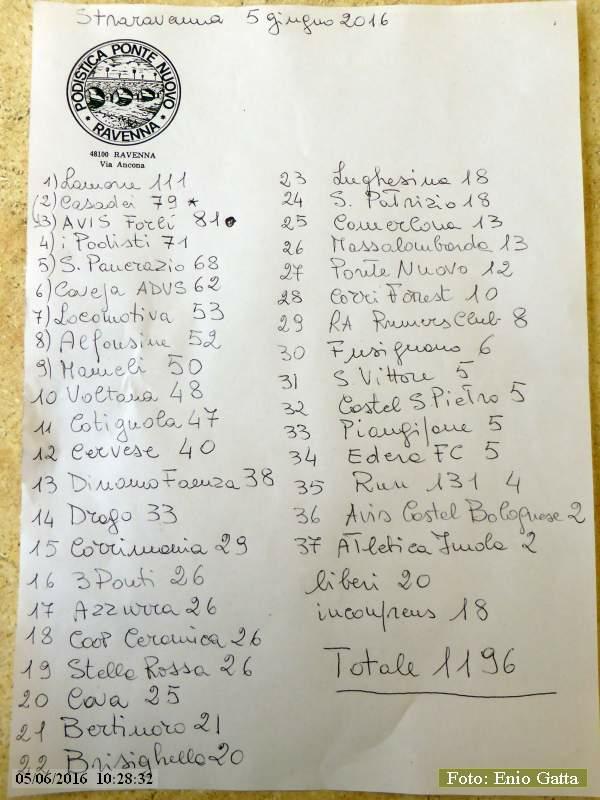 Straravenna 5 giugno 2016
PODISTICA PONTE NUOVO
RAVENNA
48100 RAVENNA
Via Ancona
1) Lamone 111
(2) Casadei 79 *
3) AVIS Forlí 81
4) i Podisti 71
5) S. Pancrazio 68
6) Caveja ADVS 62
7) Locomotiva 53
8) Alfonsine 52
9) Mameli 50
10 Voltana 48
11 Cotignola 47
12 Cervese 40
13 Dinamo Faenza 38
14 Drago 33
15 Corrimania 29
16 3 Ponti 26
17 Azzurra 26
18 Coop Ceramica 26
19 Stella Rossa 26
20 Cava 25
21 Bertinoro 21
22 Brisighella 20
23 Lughesina 18
24 S. Patrizio 18
25 Camerlona 13
26 Massalombarda 13
27 Ponte Nuovo 12
28 Corri Forest 10
29 RA Runners Club 8
30 Fusignano 6
31 S. Vittore 5
32 Castel S. Pietro 5
33 Piangipane 5
34 Edera FC 5
35 Run 131 4
36 Avis Castel Bolognese 2
37 Atletica Imola 2
liberi 20
incompens 18
Totale 1196
05/06/2016 10:28:32
Foto: Enio Gatta